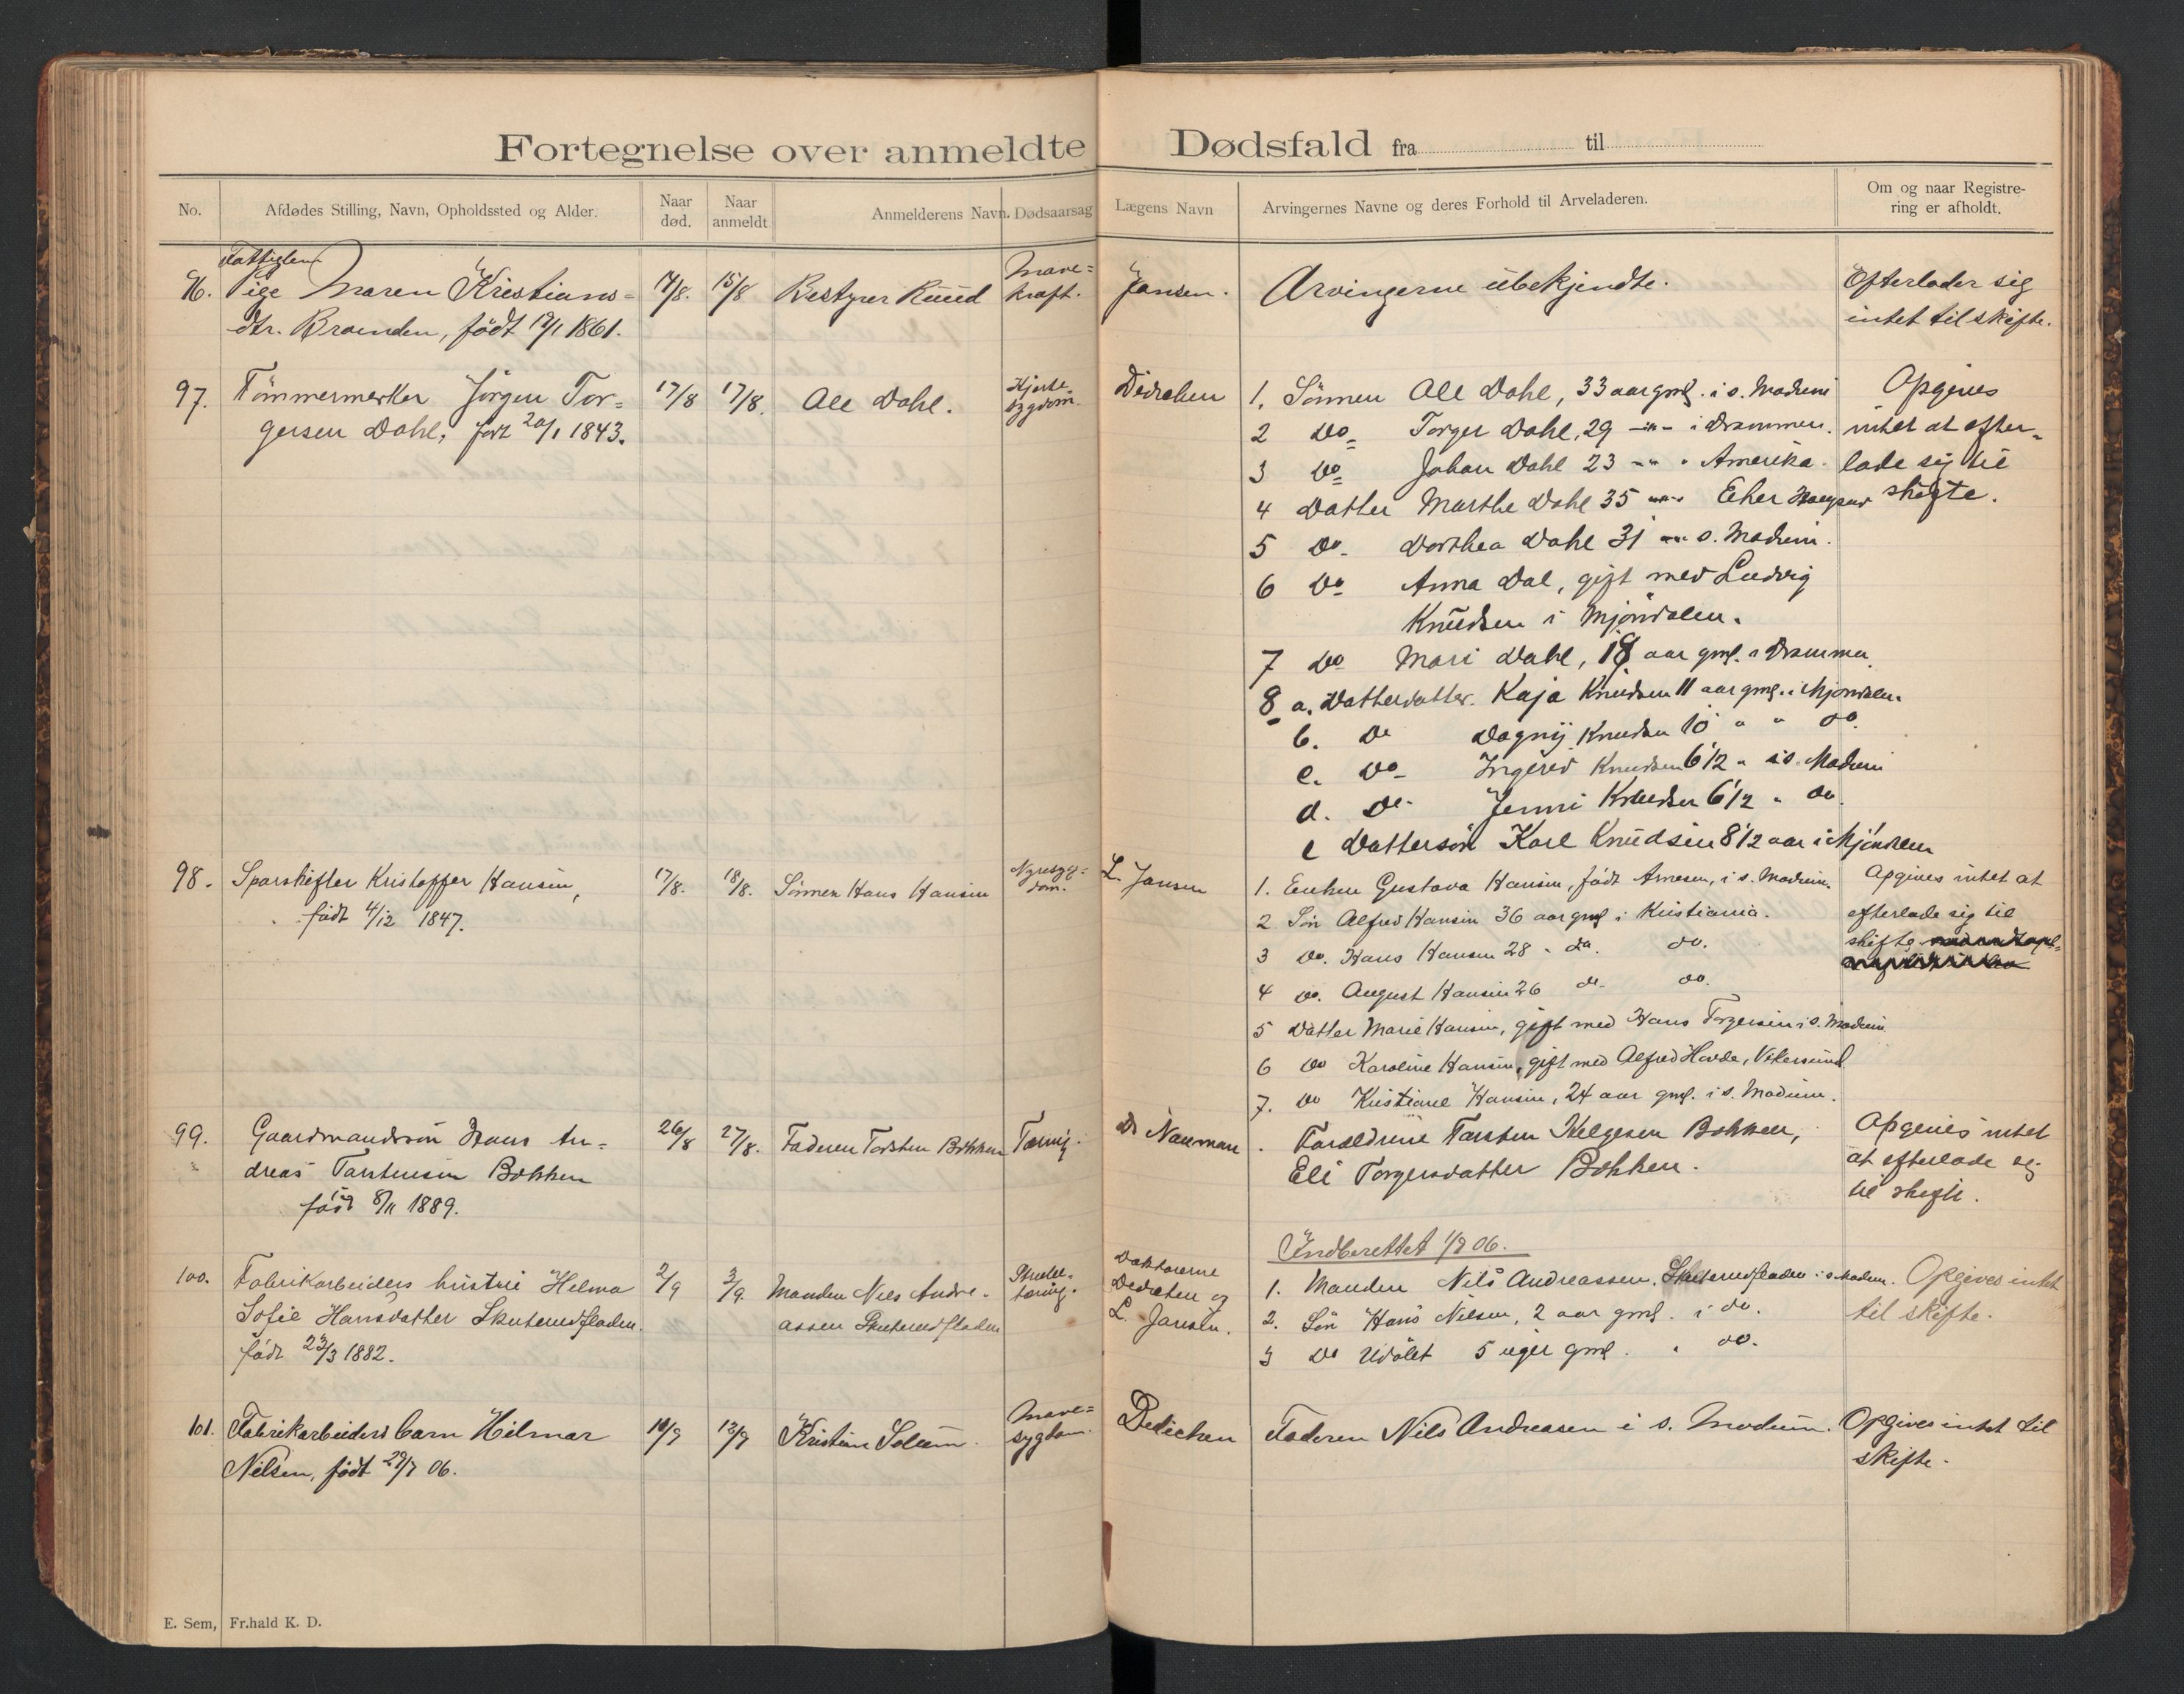 Fortegnelse over anmeldte Dødsfald fra til
No.
Afdødes Stilling, Navn, Opholdssted og Alder.
Naar død.
Naar anmeldt
Anmelderens Navn.
Dødsaarsag
Lægens Navn
Arvingernes Navne og deres Forhold til Arveladeren.
Om og naar Registre-
ring er afholdt.
Fattiglem
96. Pige Maren Kristians=
dtr. Braenden, født 19/1 1861.
14/8. 15/8 Bestyrer Ruud
Mave=
kraft.
Jansen.
Arvingerne ubekjendte.
Efterlader sig
intet til skifte.
97. Tömmermerker Jörgen Tor=
gersen Dahl, født 20/1 1843.
17/8 17/8. Ole Dahl.
Hjerte-
sygdom.
Dedichen
1. Sönnen Ole Dahl, 33 aar gml. i s. Modum
2 Do Torger Dahl, 29 -"- i Drammen.
3 Do Johan Dahl 23 -"- " Amerika.
4 Datter Marthe Dahl 35 -"- Eker
5 Do. Dorthea Dahl 31 -"- s. Modum.
6 Do Anna Dal, gift med Ludvig
Knudsen i Mjöndalen.
7 Do Mari Dahl, 18 aar gml. i Drammen
8 a. Datterdatter. Kaja Knudsen 11 aar gml. i Mjöndalen.
b. Do Dagny Knudsen 10 " " do.
c. Do Ingerid Knudsen 6 1/2 " i s. Modum
d. Do. Jenni Knudsen 6 1/2 " do.
e Dattersön Karl Knudsen 8 1/2 aar i Mjöndalen
Opgives
intet at efter-
lade sig til
skifte.
98. Sporskifter Kristoffer Hansen,
født 4/12 1847.
17/8. 18/8. Sönnen Hans Hansen
Nyresyg=
dom.
L. Jansen
1. Enken Gustava Hansen, født Arnesen, i s. Modum.
2 Sön Alfred Hansen 36 aar gml i Kristiania.
3 Do. Hans Hansen 28 " do. do.
4 Do. August Hansen 26 do. do.
5 Datter Marie Hansen, gift med Hans Torgersen i s. Modum.
6 Do Karoline Hansen, gift med Alfred Hovde, Vikersund
7. Do Kristiane Hansen, 24 aar gml. i s. Modum.
Opgives intet at
efterlade sig til
skifte
99. Gaardmandssön Hans An=
dreas Torstensen Bokken
född 8/11 1889.
26/8 27/8. Faderen Torsten Bokken Tæring.
Dr Nauman
Forældrene Torsten Helgesen Bokken,
Eli Torgersdatter Bokken.
Opgives intet
at efterlade sig
til skifte.
Indberettet 1/9 06.
100. Fabrikarbeiders hustrue Helma
Sofie Hansdatter Skuterudfladen.
født 23/3 1882.
2/9 3/9. Manden Nils Andre-
assen Skuterudfladen
Strube-
tæring.
Doktorerne
Dedichen og
L. Jansen.
1. Manden Nils Andreassen, Skuterudfladen i s. Modum.
2. Sön Hans Nilsen, 2 aar gml. i do.
3 Do Udöbt 5 uger gml. " do.
Opgives intet
til skifte.
101. Fabrikarbeiders barn Hilmar
Nilsen, født 29/7 06.
10/9 12/9 Kristian Solum.
Mave=
sygdom.
Dedichen
Faderen Nils Andreasen i s. Modum.
Opgives intet til
skifte.
E. Sem, Fr.hald K. D.